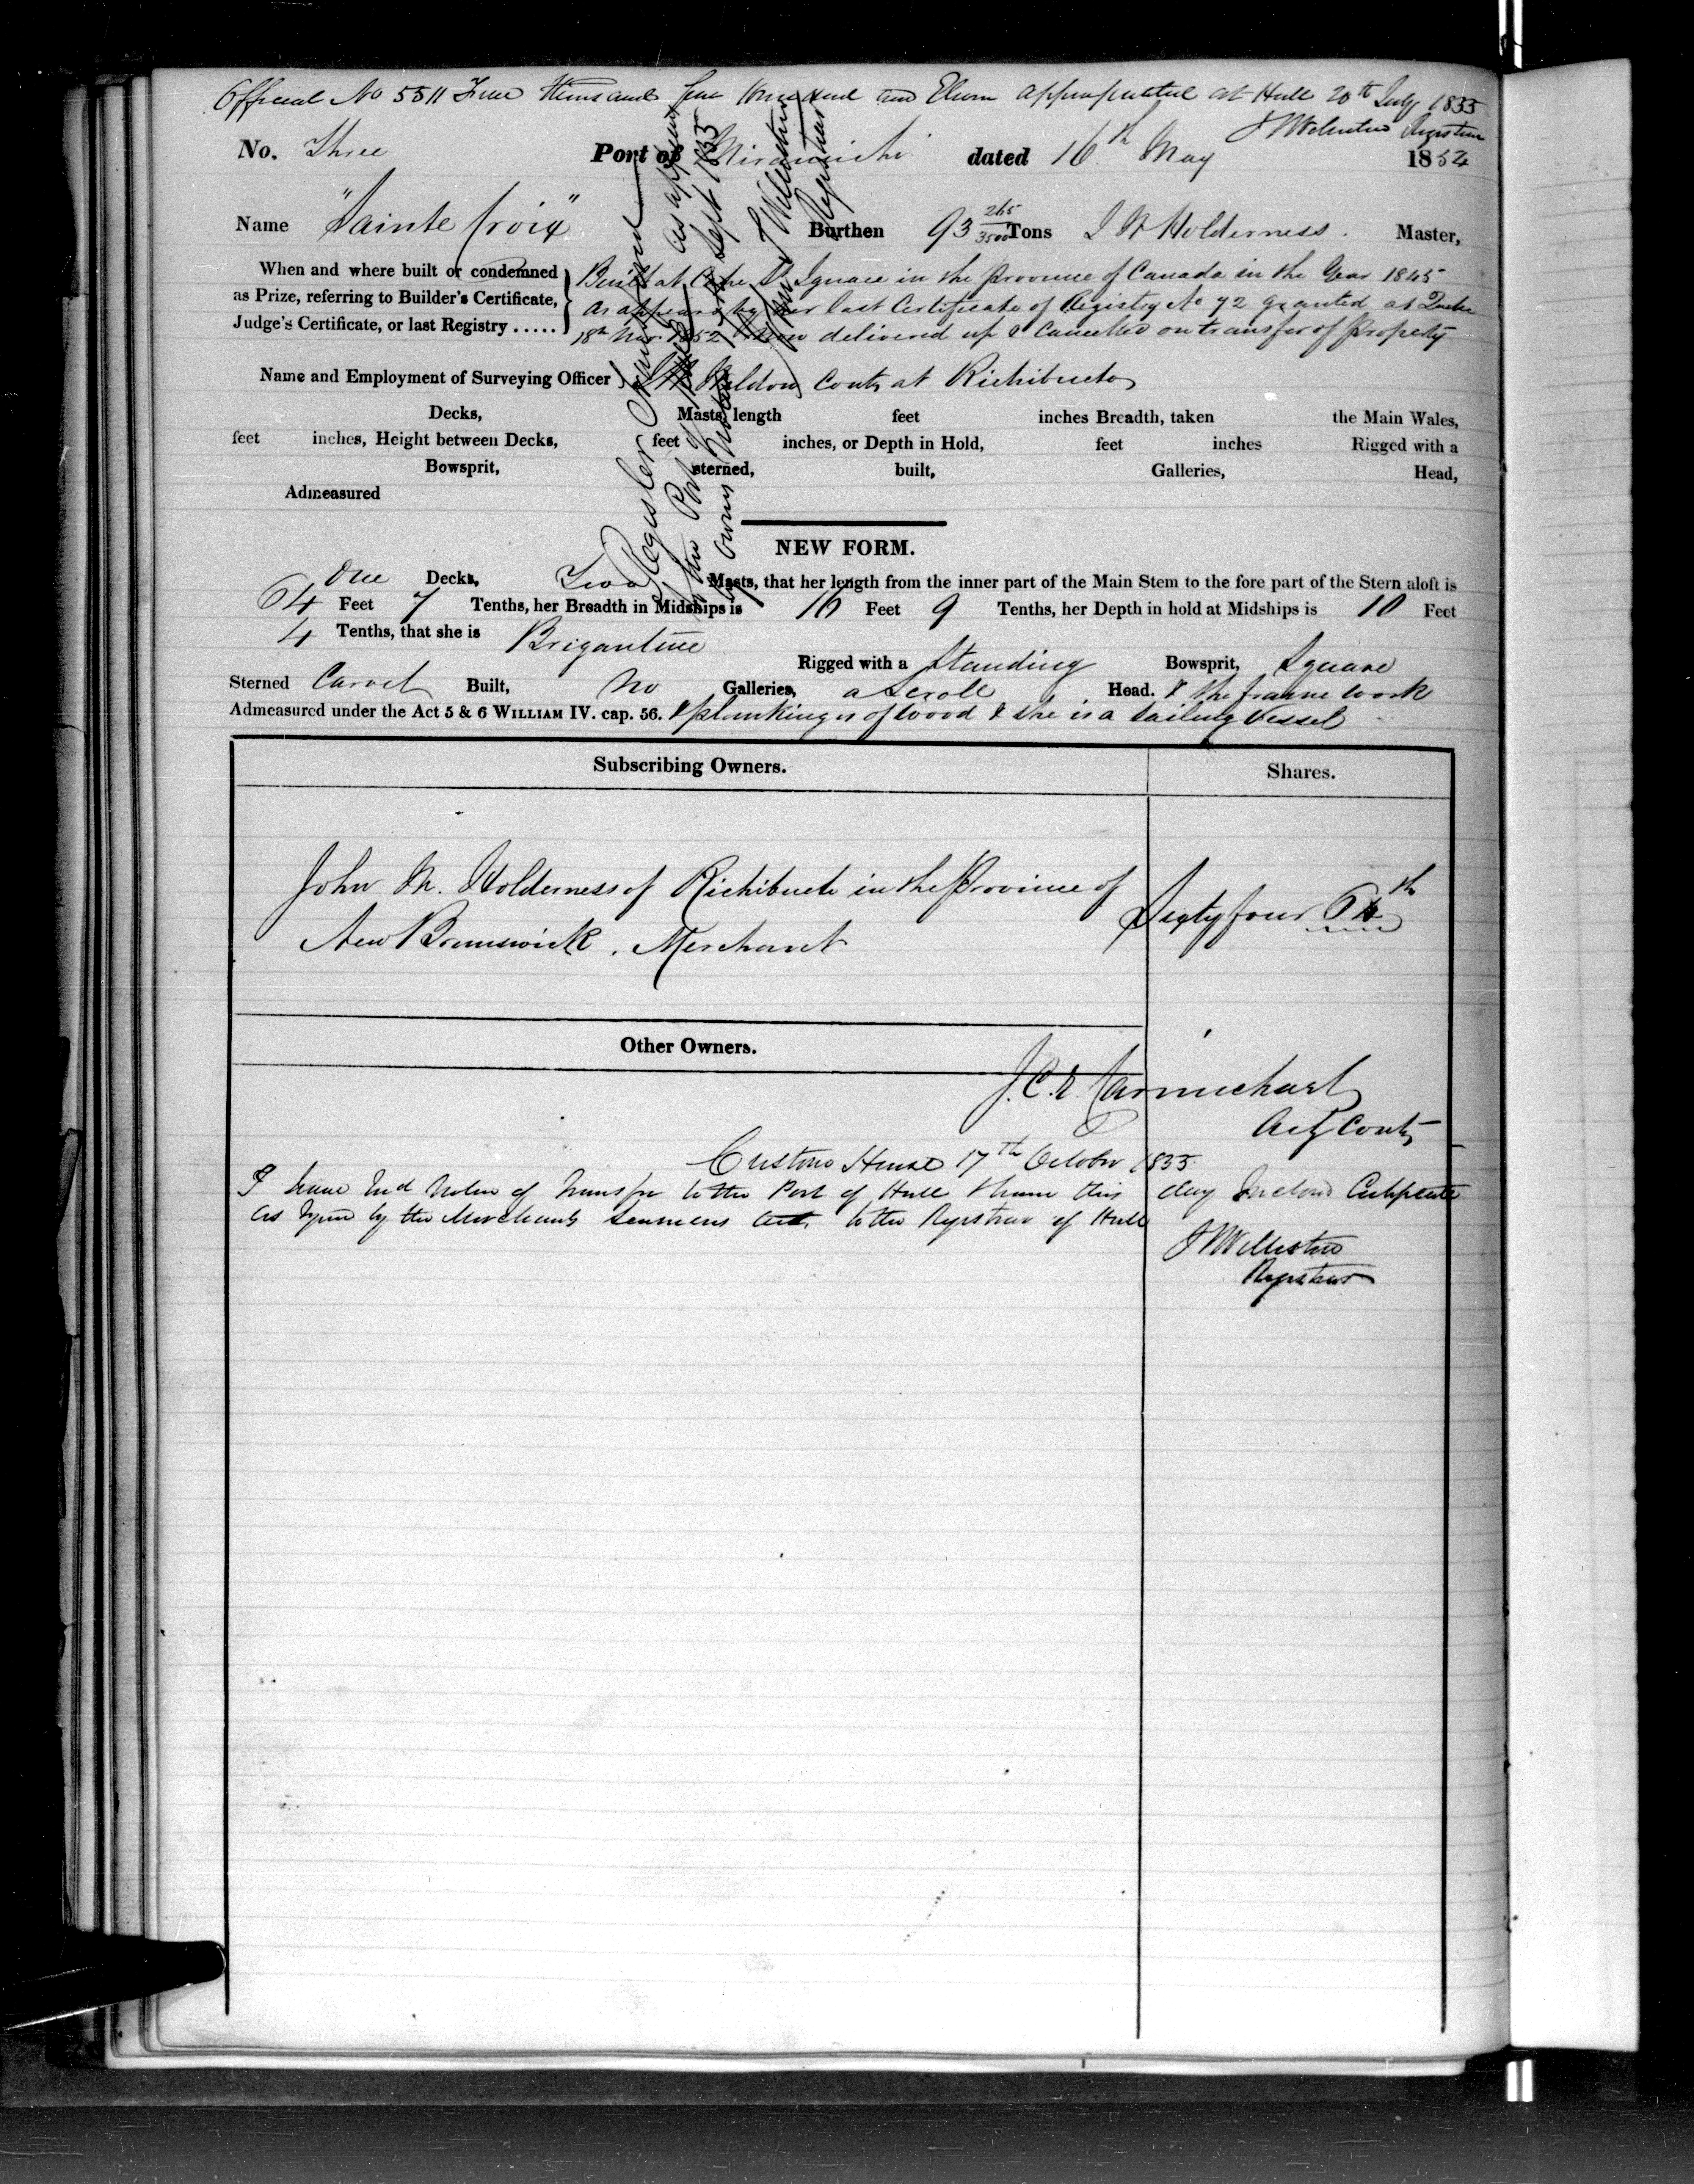 Official No 5511 Five thousand five hundred and Eleven appropriated at Hull 20th July 1855
J Williston Registrar
No. Three Port of Miramichi dated 16th May 1854
Name "Sainte Croix" Burthen 93 265/3500 Tons J N Holderness. Master,
When and where built or condemned as Prize, referring to Builder's Certificate, Judge's Certificate, or last Registry .....
Built at Cape St Ignace in the province of Canada in the Year 1845
as appears by her last Certificate of Registry No 72 granted at Quebec
18th Nov. 1852 now delivered up & Cancelled on transfer of property
Name and Employment of Surveying Officer Weldon Contr at Richibucto
Decks, Masts, length feet inches Breadth, taken the Main Wales,
feet inches, Height between Decks, feet inches, or Depth in Hold, feet inches Rigged with a
Bowsprit, sterned, built, Galleries, Head,
Admeasured
Register
as appears
Sept 1855
J Williston
Registrar
NEW FORM.
One Decks, Two Masts, that her length from the inner part of the Main Stem to the fore part of the Stern aloft is
64 Feet 7 Tenths, her Breadth in Midships is 16 Feet 9 Tenths, her Depth in hold at Midships is 10 Feet
4 Tenths, that she is Brigantine
Rigged with a Standing Bowsprit, Square
Sterned Carvel Built, No Galleries, a Scroll Head. & the frame work
Admeasured under the Act 5 & 6 WILLIAM IV. cap. 56. & planking is of wood & she is a Sailing Vessel
Subscribing Owners. Shares.
John N. Holderness of Richibucto in the Province of
New Brunswick. Merchant
Sixty four 64th
Other Owners.
J.C.E. Carmichael
Actg Contr
Customs House 17th October 1855.
I have Recd Notice of Transfer to the Port of Hull & have this day Inclosed Certificate
as reqd by the Merchants Seamens Act, to the Registrar of Hull
J Williston
Registrar